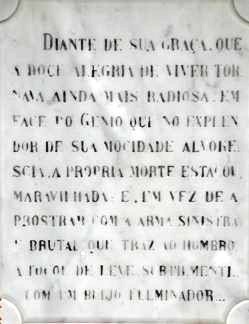 DIANTE DE SUA GRAÇA, QUE
A DOCE ALEGRIA DE VIVER TOR
NAVA AINDA MAIS RADIOSA, EM
FACE DO GENIO QUE NO EXPLEN
DOR DE SUA MOCIDADE ALVORE
SCIA, A PROPRIA MORTE ESTACOU,
MARAVILHADA: E, EM VEZ DE A
PROSTRAR COM A ARMA SINISTRA
E BRUTAL QUE TRAZ AO HOMBRO
A TOCOU DE LEVE, SUBTILMENTE,
COM UM BEIJO FULMINADOR...